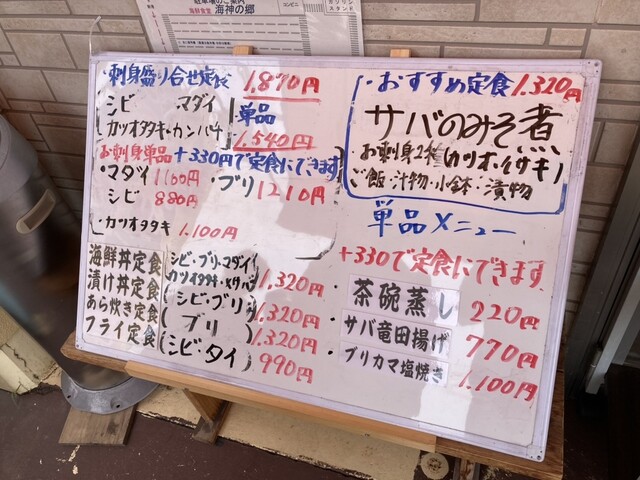 駐車場のご案内
海鮮食堂 海神の郷
コンビニ
ガソリン
スタンド
・刺身盛り合せ定食 1,870円
シビ マダイ
カツオタタキ・カンパチ
単品
1,540円
お刺身単品+330円で定食にできます
・マダイ 1100円
・ブリ 1210円
シビ 880円
・カツオタタキ 1.100円
海鮮丼定食
シビ・ブリ・マダイ
カツオタタキ
1,320円
漬け丼定食
シビ・ブリ
1,320円
あら炊き定食
ブリ
1,320円
フライ定食
シビ・タイ
990円
・おすすめ定食 1,320円
サバのみそ煮
お刺身2種(カツオ・イサキ)
ご飯・汁物・小鉢・漬物
単品メニュー
+330で定食にできます
・茶碗蒸し 220円
・サバ竜田揚げ 770円
・ブリカマ塩焼き 1.100円